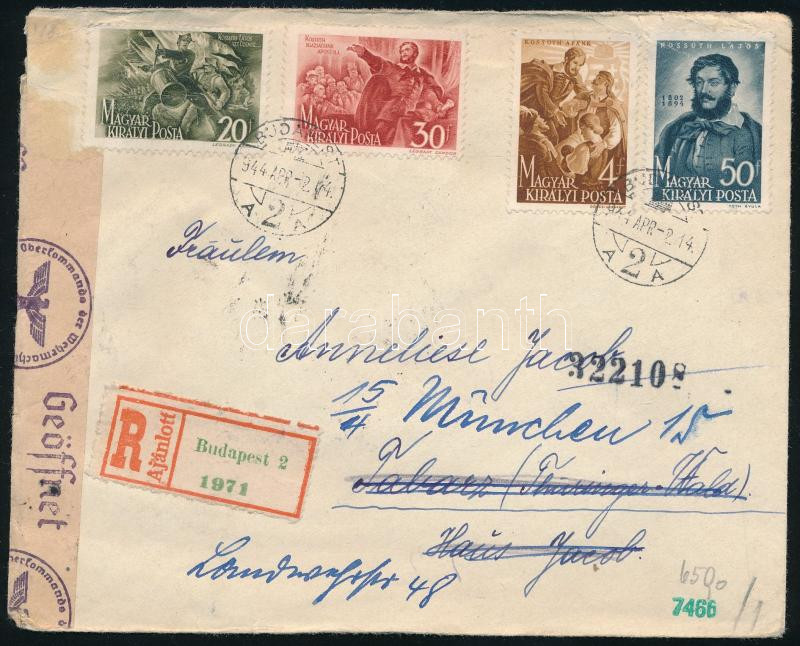 KOSSUTH LAJOS
MAGYAR
KIRÁLYI POSTA
20f
LÉGRÁDY SÁNDOR
KOSSUTH
MAGYAR
KIRÁLYI POSTA
30f
LÉGRÁDY SÁNDOR
KOSSUTH APÁNK
MAGYAR
KIRÁLYI POSTA
4f
KOSSUTH LAJOS
1802
1894
MAGYAR
KIRÁLYI POSTA
50f
TÓTH GYULA
BUDAPEST
944 APR-2.14.
A 2 A
BUDAPEST
944 APR-2.14.
A 2 A
Fräulein
Anneliese Jacob
322108
15/4 München 15
Tabarz (Thüringer-Wald)
Haus Jacob.
Landwehrstr 48
R
Ajánlott
Budapest 2
1971
Oberkommando der Wehrmacht
Geöffnet
Oberkommando d
darabanth
650,-
7466
/1